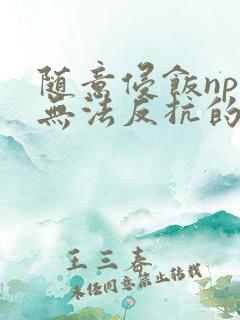 随意侵飯np
無法反抗的
王三春
未经同意禁止转载